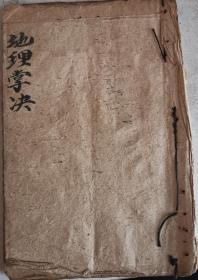 地理掌决